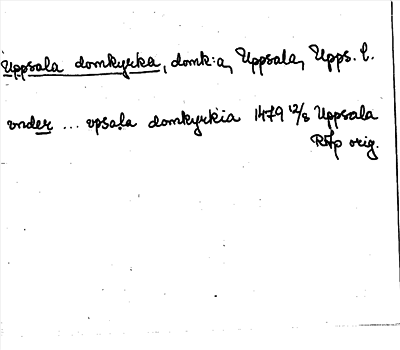 Uppsala domkyrka, domk:a, Uppsala, Upps. l.
vnder ... vpsala domkyrkia 1479 12/8 Uppsala
RAp orig.